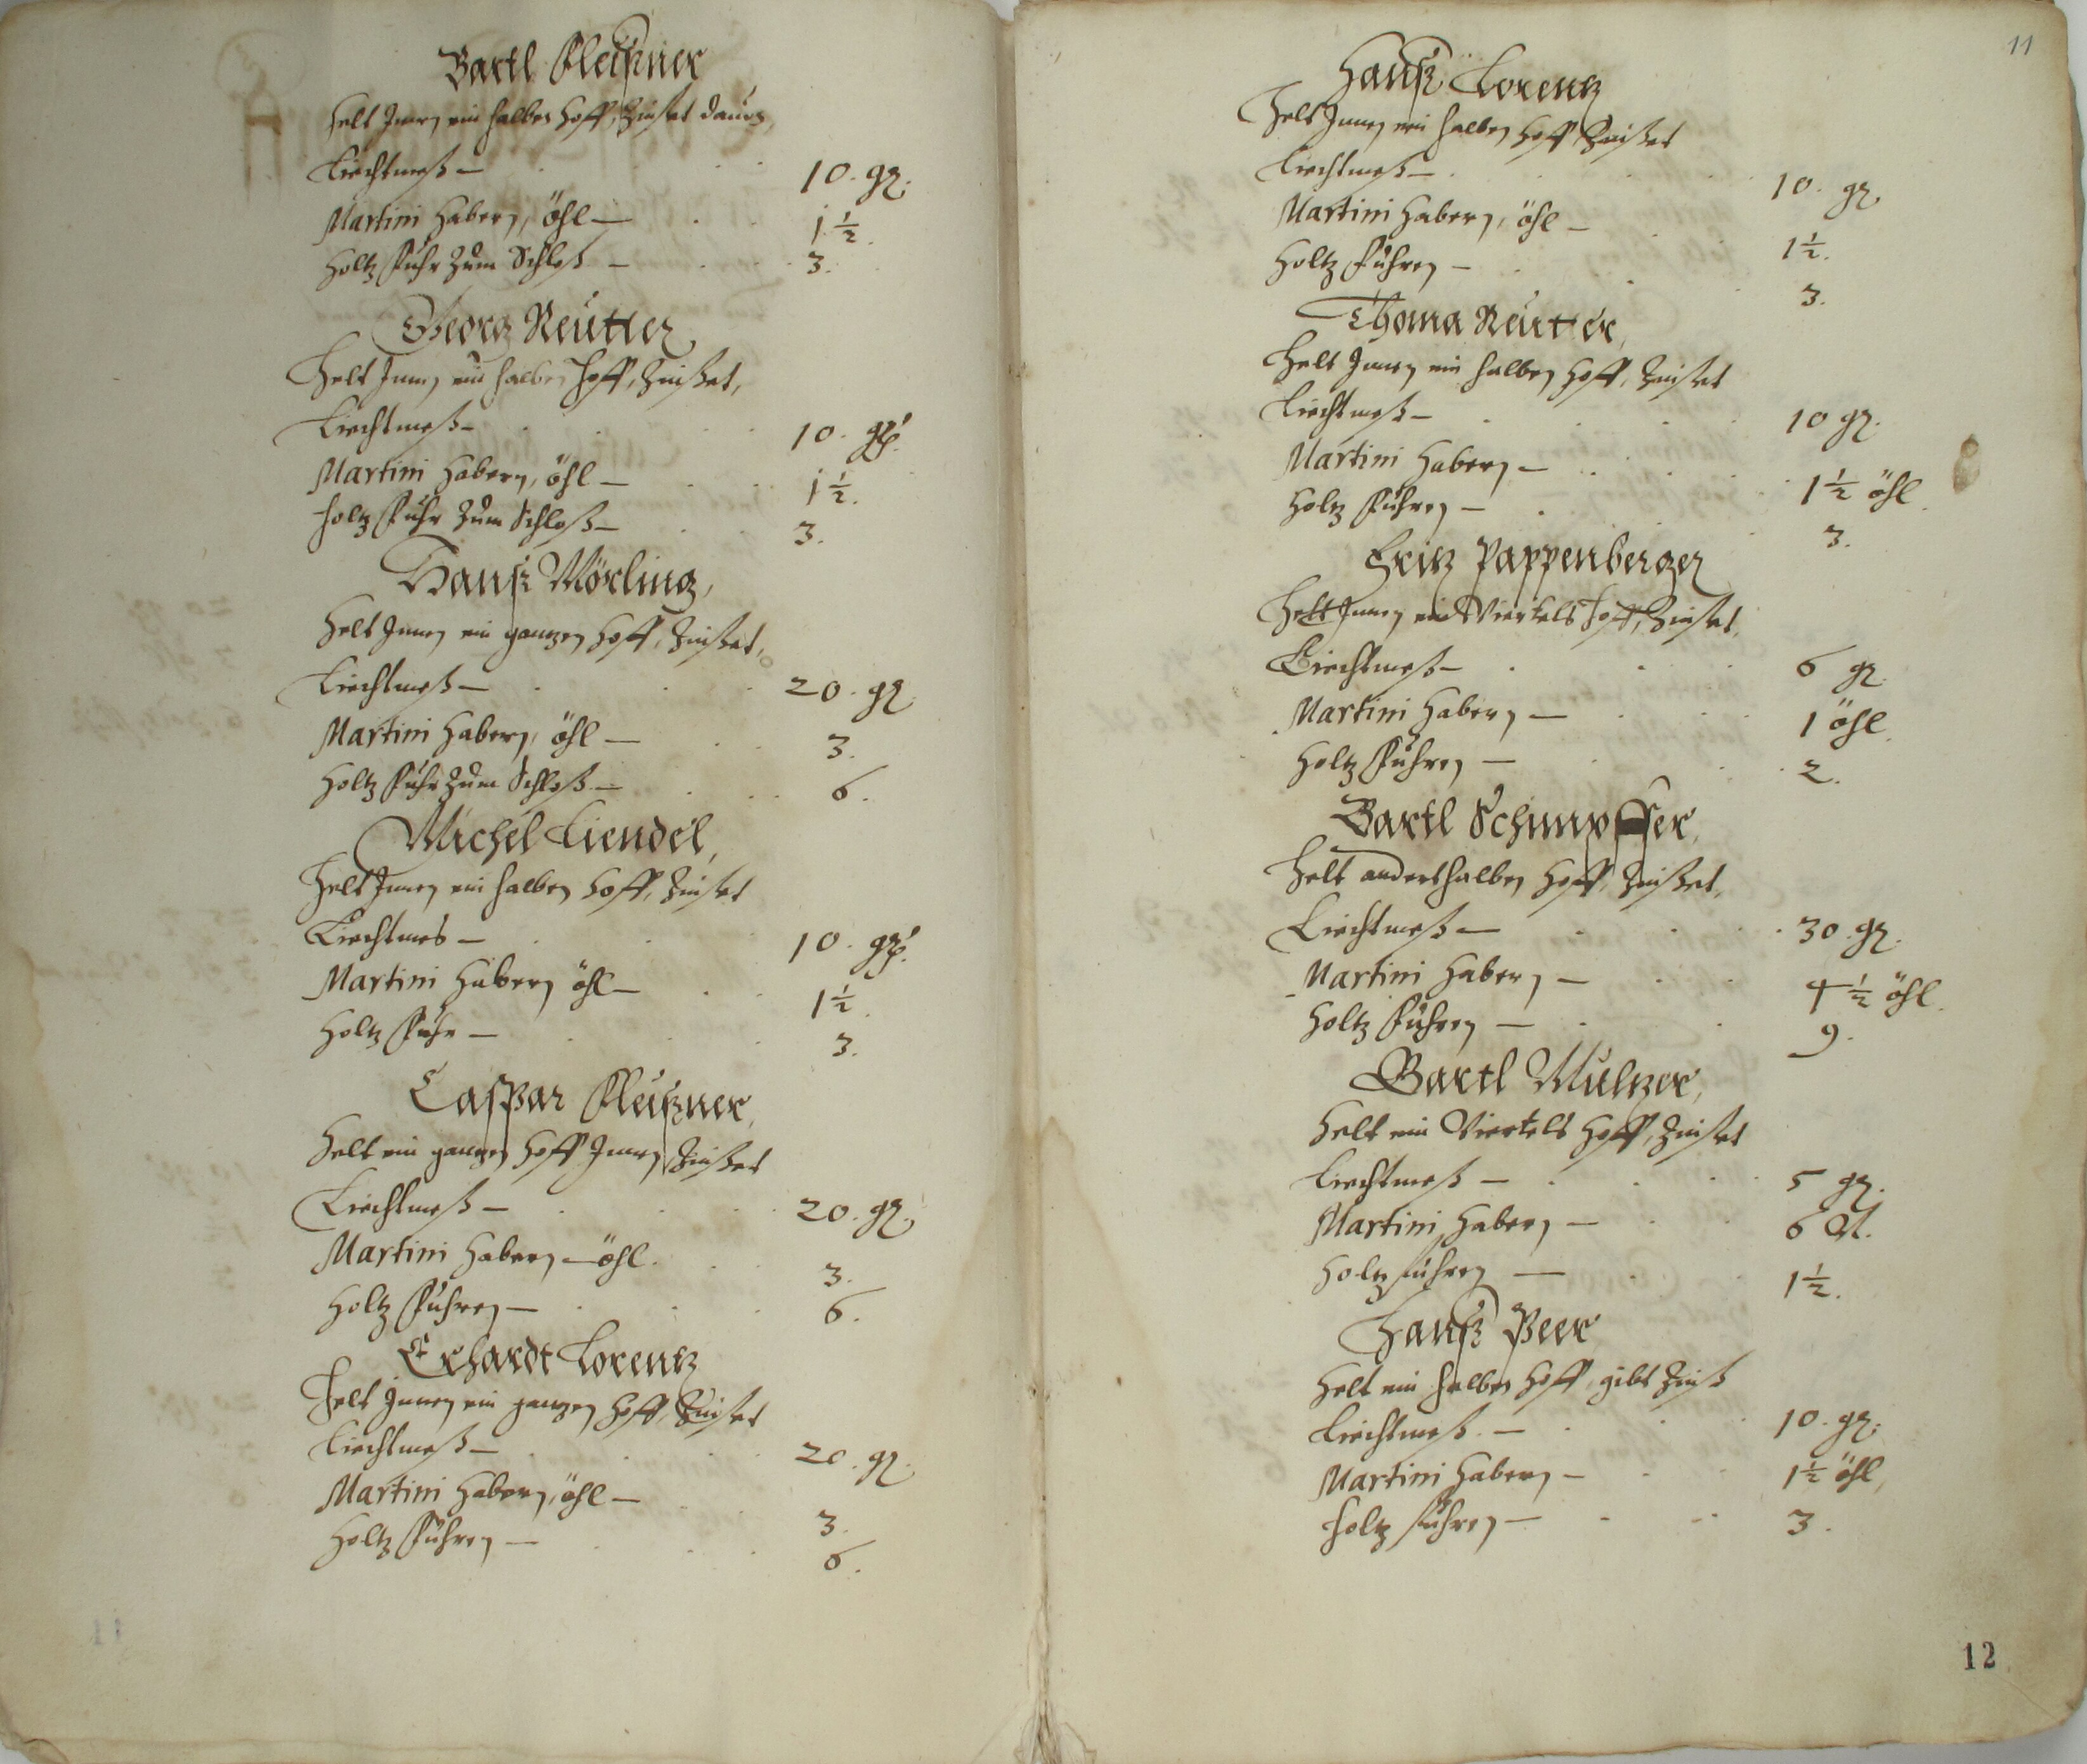 Bartl Fleißner
Helt Innen ein halben Hoff, Zinset dauon,
Liechtmeß — 10. gr.
Martini Habern, öhl — 1 1/2.
Holtz Fuhr Zum Schloß — 3.
Georg Reutter,
Helt Innen ein halben Hoff, Zinßet,
Liechtmeß — 10. gr.
Martini Habern, öhl — 1 1/2.
Holtz Fuhr Zum Schloß — 3.
Hanß Mörling,
Helt Innen ein ganzen Hoff, Zinßet,
Liechtmeß — 20. gr.
Martini Habern, öhl — 3.
Holtz Fuhr Zum Schloß — 6.
Michel Liendel,
Helt Innen ein halben Hoff, Zinßet
Liechtmes — 10. gr.
Martini Habern öhl — 1 1/2.
Holtz Fuhr — 3.
Caspar Fleißner,
Helt ein ganzen Hoff Innen, Zinßet
Liechtmeß — 20. gr.
Martini Habern — öhl. 3.
Holtz Fuhren — 6.
Erhardt Lorentz
Helt Innen ein ganzen Hoff, Zinset
Liechtmeß — 20. gr.
Martini Habern, öhl — 3.
Holtz Fuhren — 6.
11
11
Hanß Lorentz
Helt Innen ein halben Hoff, Zinßet
Liechtmeß — 10. gr.
Martini Habern, öhl — 1 1/2.
Holtz Fuhren — 3.
Thoma Reutter,
Helt Innen ein halben Hoff, Zinset
Liechtmeß — 10 gr.
Martini Habern — 1 1/2 öhl.
Holtz Fuhren — 3.
Fritz Pappenberger
Helt Innen ein Viertels Hoff, Zinset,
Liechtmeß — 6 gr.
Martini Habern — 1 öhl.
Holtz Fuhren — 2.
Bartl
Helt anderthalben Hoff, Zinßet,
Liechtmeß — 30 gr.
Martini Habern — 4 1/2 öhl.
Holtz Fuhren — 9.
Bartl Multzer,
Helt ein Viertels Hoff, Zinset
Liechtmeß — 5 gr.
Martini Habern — 6
Holtz fuhren — 1 1/2.
Hanß Peer
Helt ein halben Hoff, gibt Zinß
Liechtmeß — 10. gr.
Martini Habern — 1 1/2 öhl,
Holtz fuhren — 3.
12